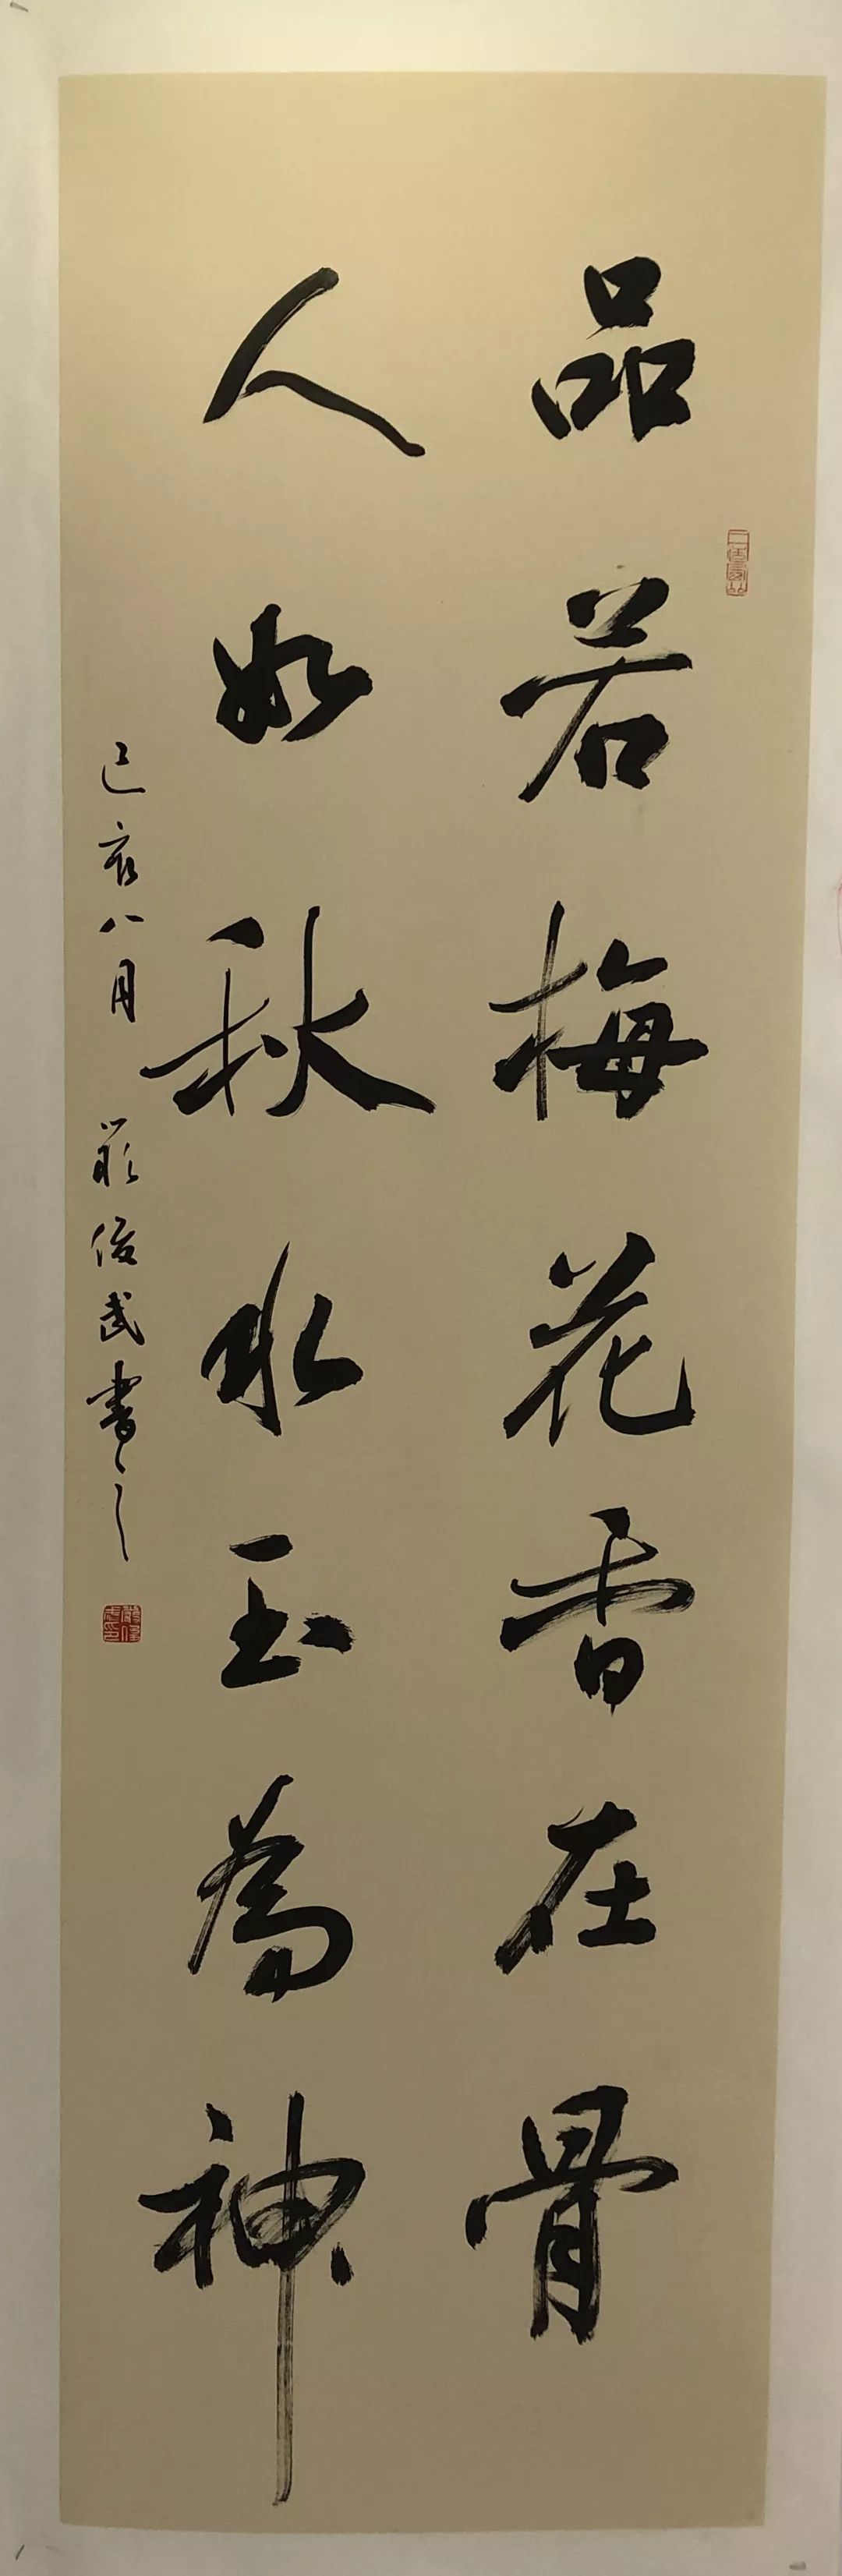 品若梅花香在骨
人如秋水玉为神
己亥八月 严俊武书之